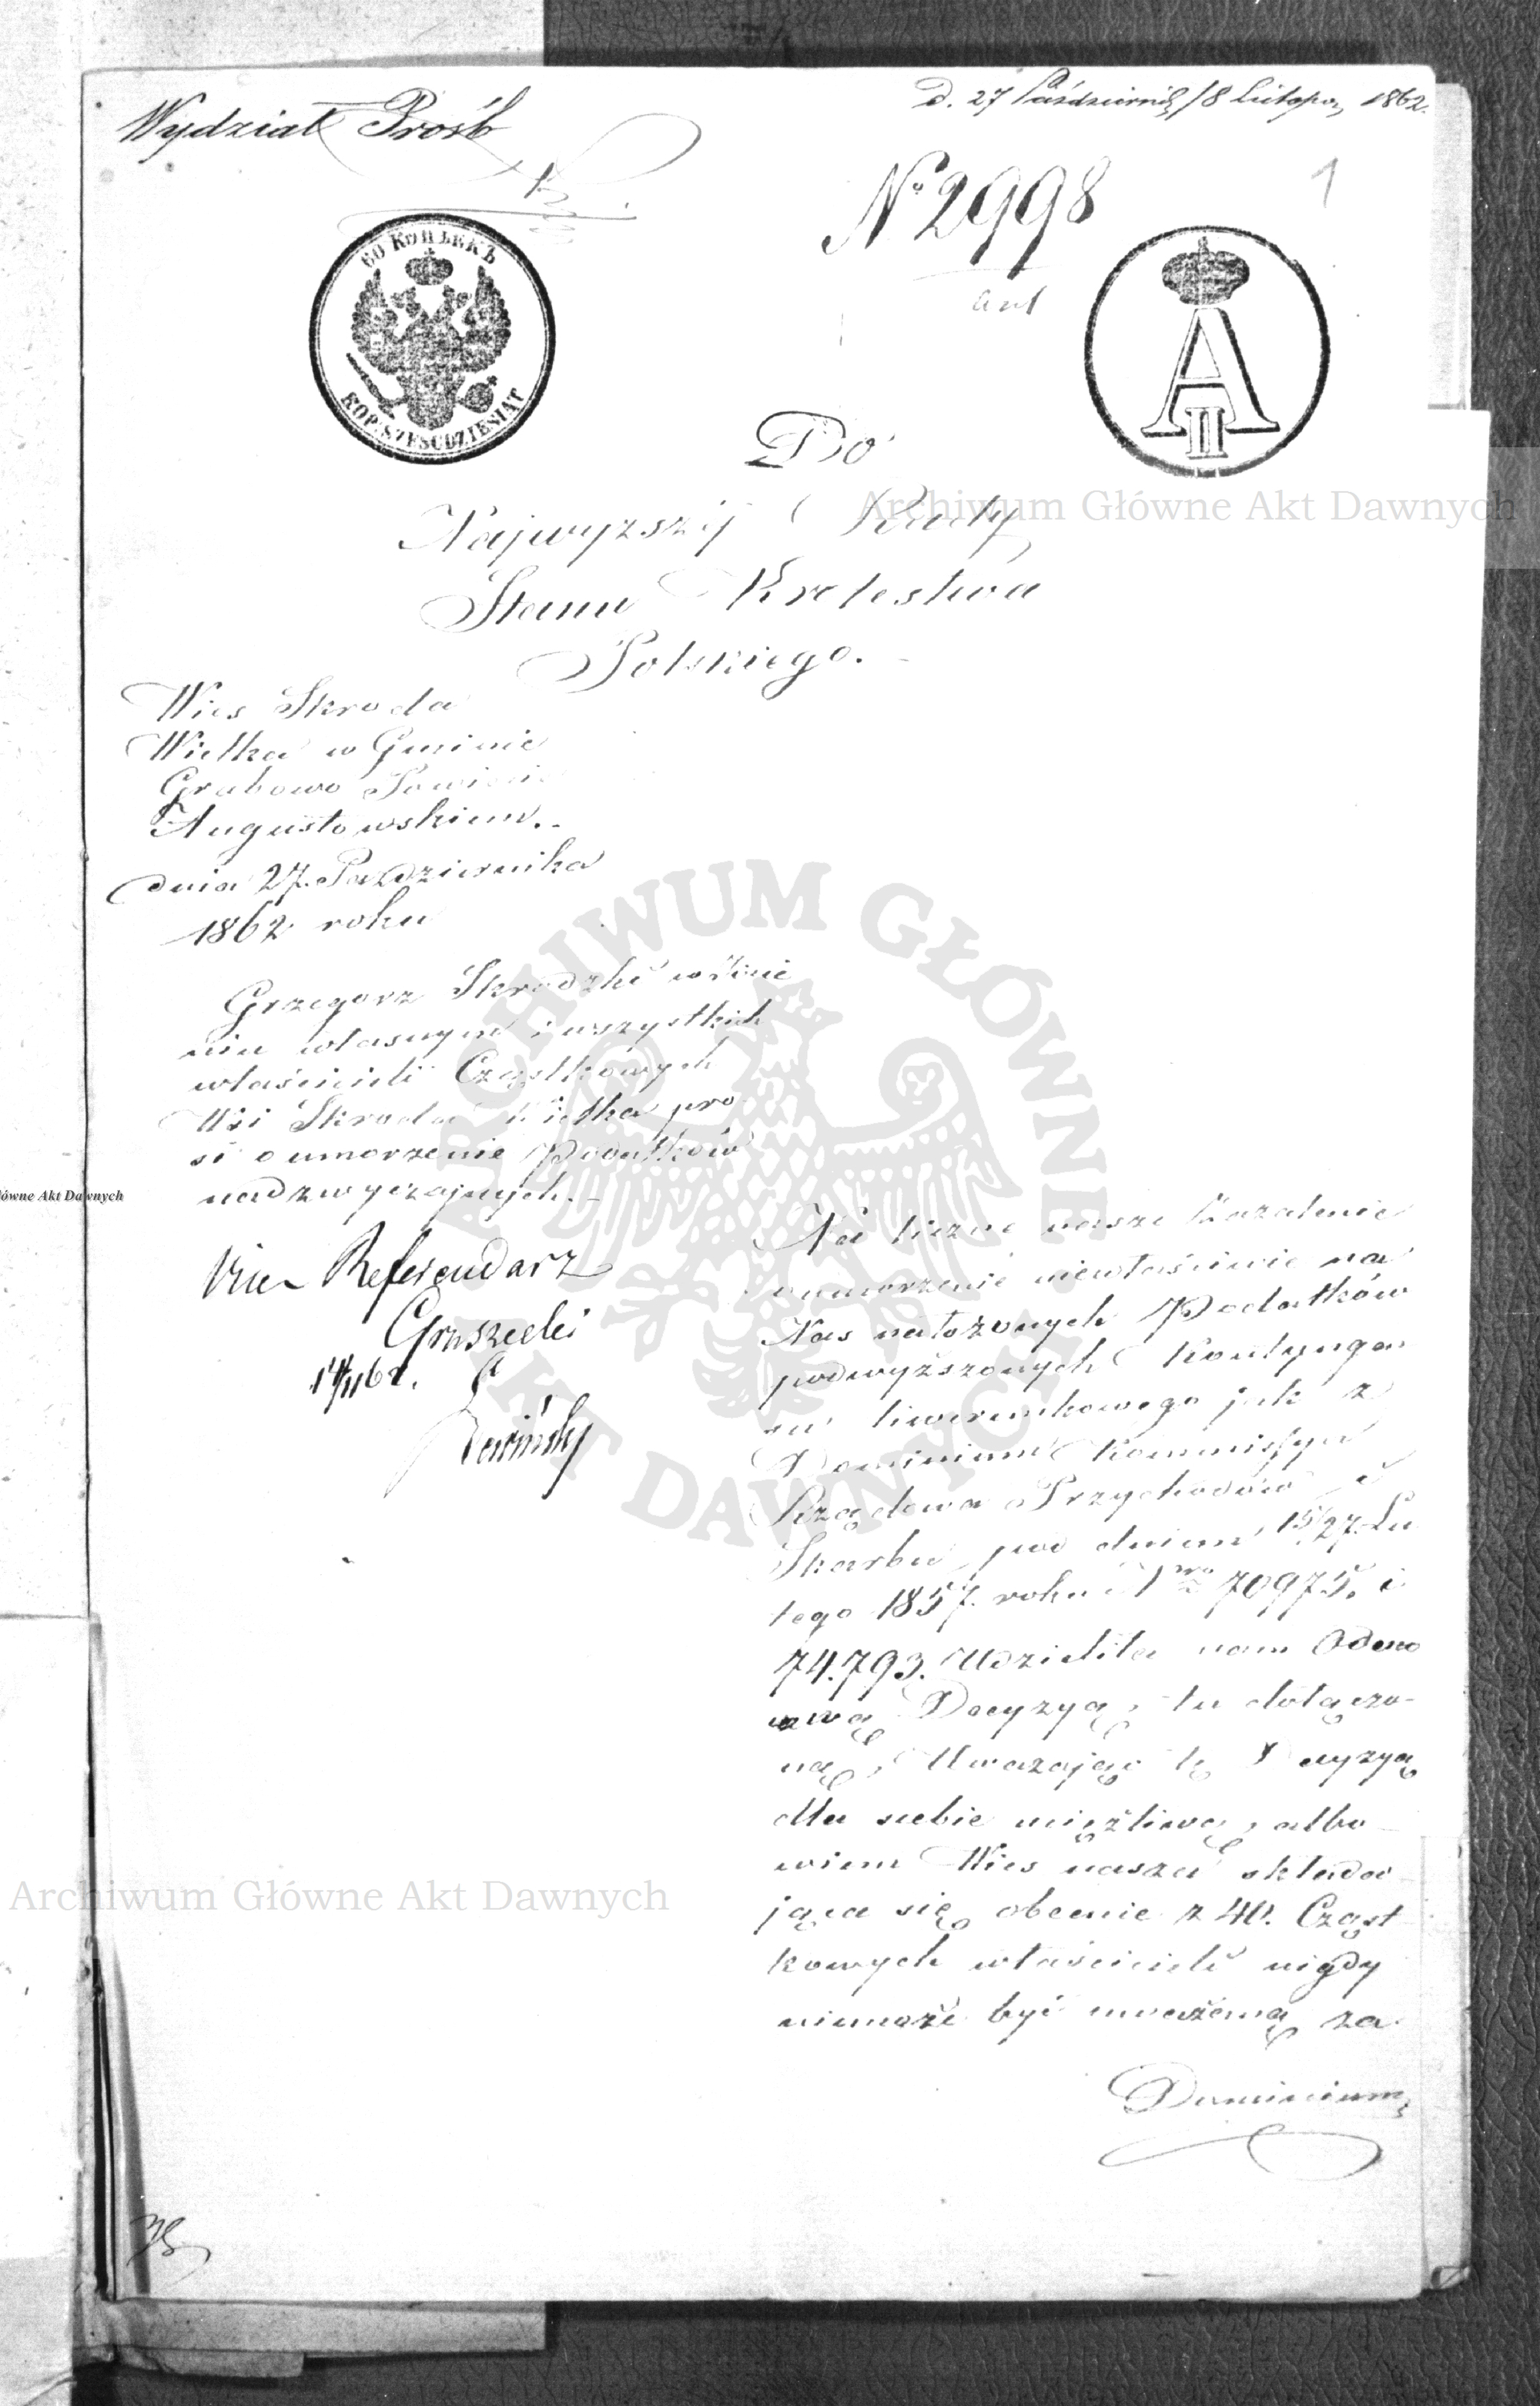 Wydział Prośb
D. 27 Październik/8 Listopa 1862.
No 2998
1
60 КОПѢЕКЪ
KOP. SZESCDZIESIAT
A
II
Do
Najwyzszéj Rady
Stanu Krolestwa
Polskiego.
Wies Skroda
Wielka w Gminie
Grabowo Powiecie
Augustowskim.
dnia 27. Pazdziernika
1862 roku
Grzegorz Skrodzki w Imie
niu własnym i wszystkich
właścicieli Cząstkowych
Wsi Skroda Wielka pro
si o umorzenie Podatków
nadzwyczajnych.
Vice Referendarz
Na liczne nasze Zazalenie
o umorzenie niewłaściwie na
Nas nałożonych Podatków
podwyższonych Kontyngen
su liwerunkowego jak z
Dominium Kommissya
Rządowa Przychodów i
Skarbu pod dniem 15/27. Lu
tego 1857. roku Nro 70975. i
74.793. Udzieliła nam Odmo
wną Decyzyą, tu dołączo-
ną, Uwazając tę Decyzyą
dla siebie uciążliwą, albo
wiem Wies nasza składa
jąca się obecnie z 40. Cząst
kowych właścicieli nigdy
niemoże być uważaną za
Dominium,
Archiwum Główne Akt Dawnych
Archiwum Główne Akt Dawnych
ówne Akt Dawnych
ARCHIWUM GŁÓWNE AKT DAWNYCH